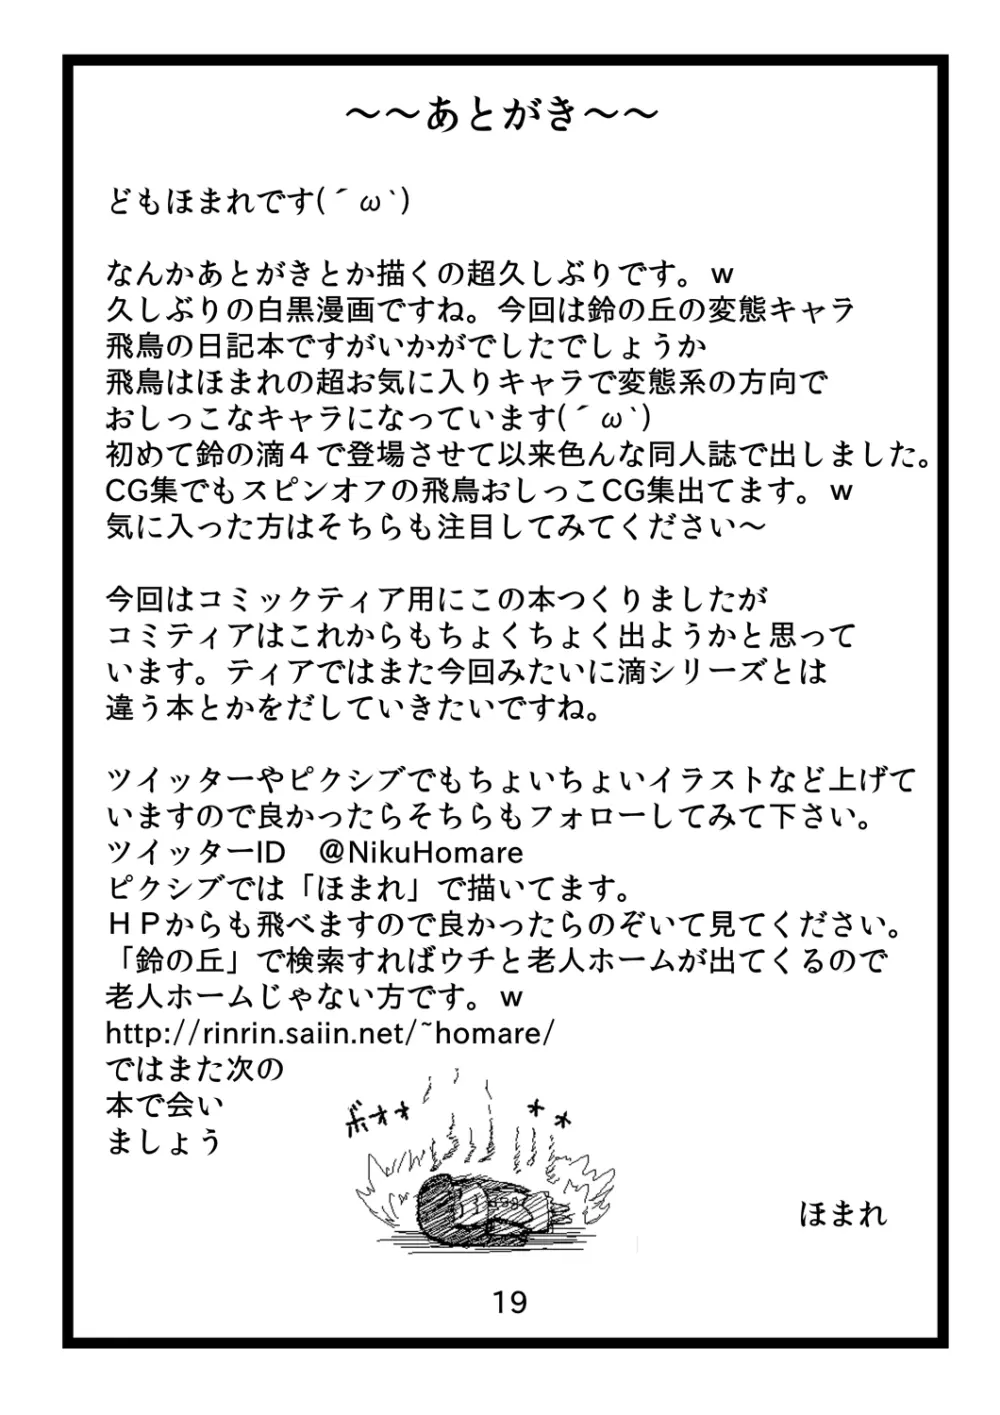 ～～あとがき～～
どもほまれです(´ω`)
なんかあとがきとか描くの超久しぶりです。ｗ
久しぶりの白黒漫画ですね。今回は鈴の丘の変態キャラ
飛鳥の日記本ですがいかがでしたでしょうか
飛鳥はほまれの超お気に入りキャラで変態系の方向で
おしっこなキャラになっています(´ω`)
初めて鈴の滴４で登場させて以来色んな同人誌で出しました。
CG集でもスピンオフの飛鳥おしっこCG集出てます。ｗ
気に入った方はそちらも注目してみてください～
今回はコミックティア用にこの本つくりましたが
コミティアはこれからもちょくちょく出ようかと思って
います。ティアではまた今回みたいに滴シリーズとは
違う本とかをだしていきたいですね。
ツイッターやピクシブでもちょいちょいイラストなど上げて
いますので良かったらそちらもフォローしてみて下さい。
ツイッターID　@NikuHomare
ピクシブでは「ほまれ」で描いてます。
ＨＰからも飛べますので良かったらのぞいて見てください。
「鈴の丘」で検索すればウチと老人ホームが出てくるので
老人ホームじゃない方です。ｗ
http://rinrin.saiin.net/~homare/
ではまた次の
本で会い
ましょう
ボオォ
ほまれ
19